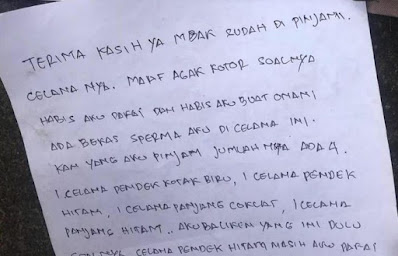 TERIMA KASIH YA MBAK SUDAH DI PINJAMI.
CELANA NYA. MAAF AGAK KOTOR SOALNYA
HABIS AKU PAKAI DAN HABIS AKU BUAT ONANI
ADA BEKAS SPERMA AKU DI CELANA INI.
KAN YANG AKU PINJAM JUMLAH NYA ADA 4.
1 CELANA PENDEK KOTAK BIRU, 1 CELANA PENDEK
HITAM, 1 CELANA PANJANG COKLAT, 1 CELANA
PANJANG HITAM.. AKU BALIKEN YANG INI DULU
CELANA PENDEK HITAM MASIH AKU PAKAI